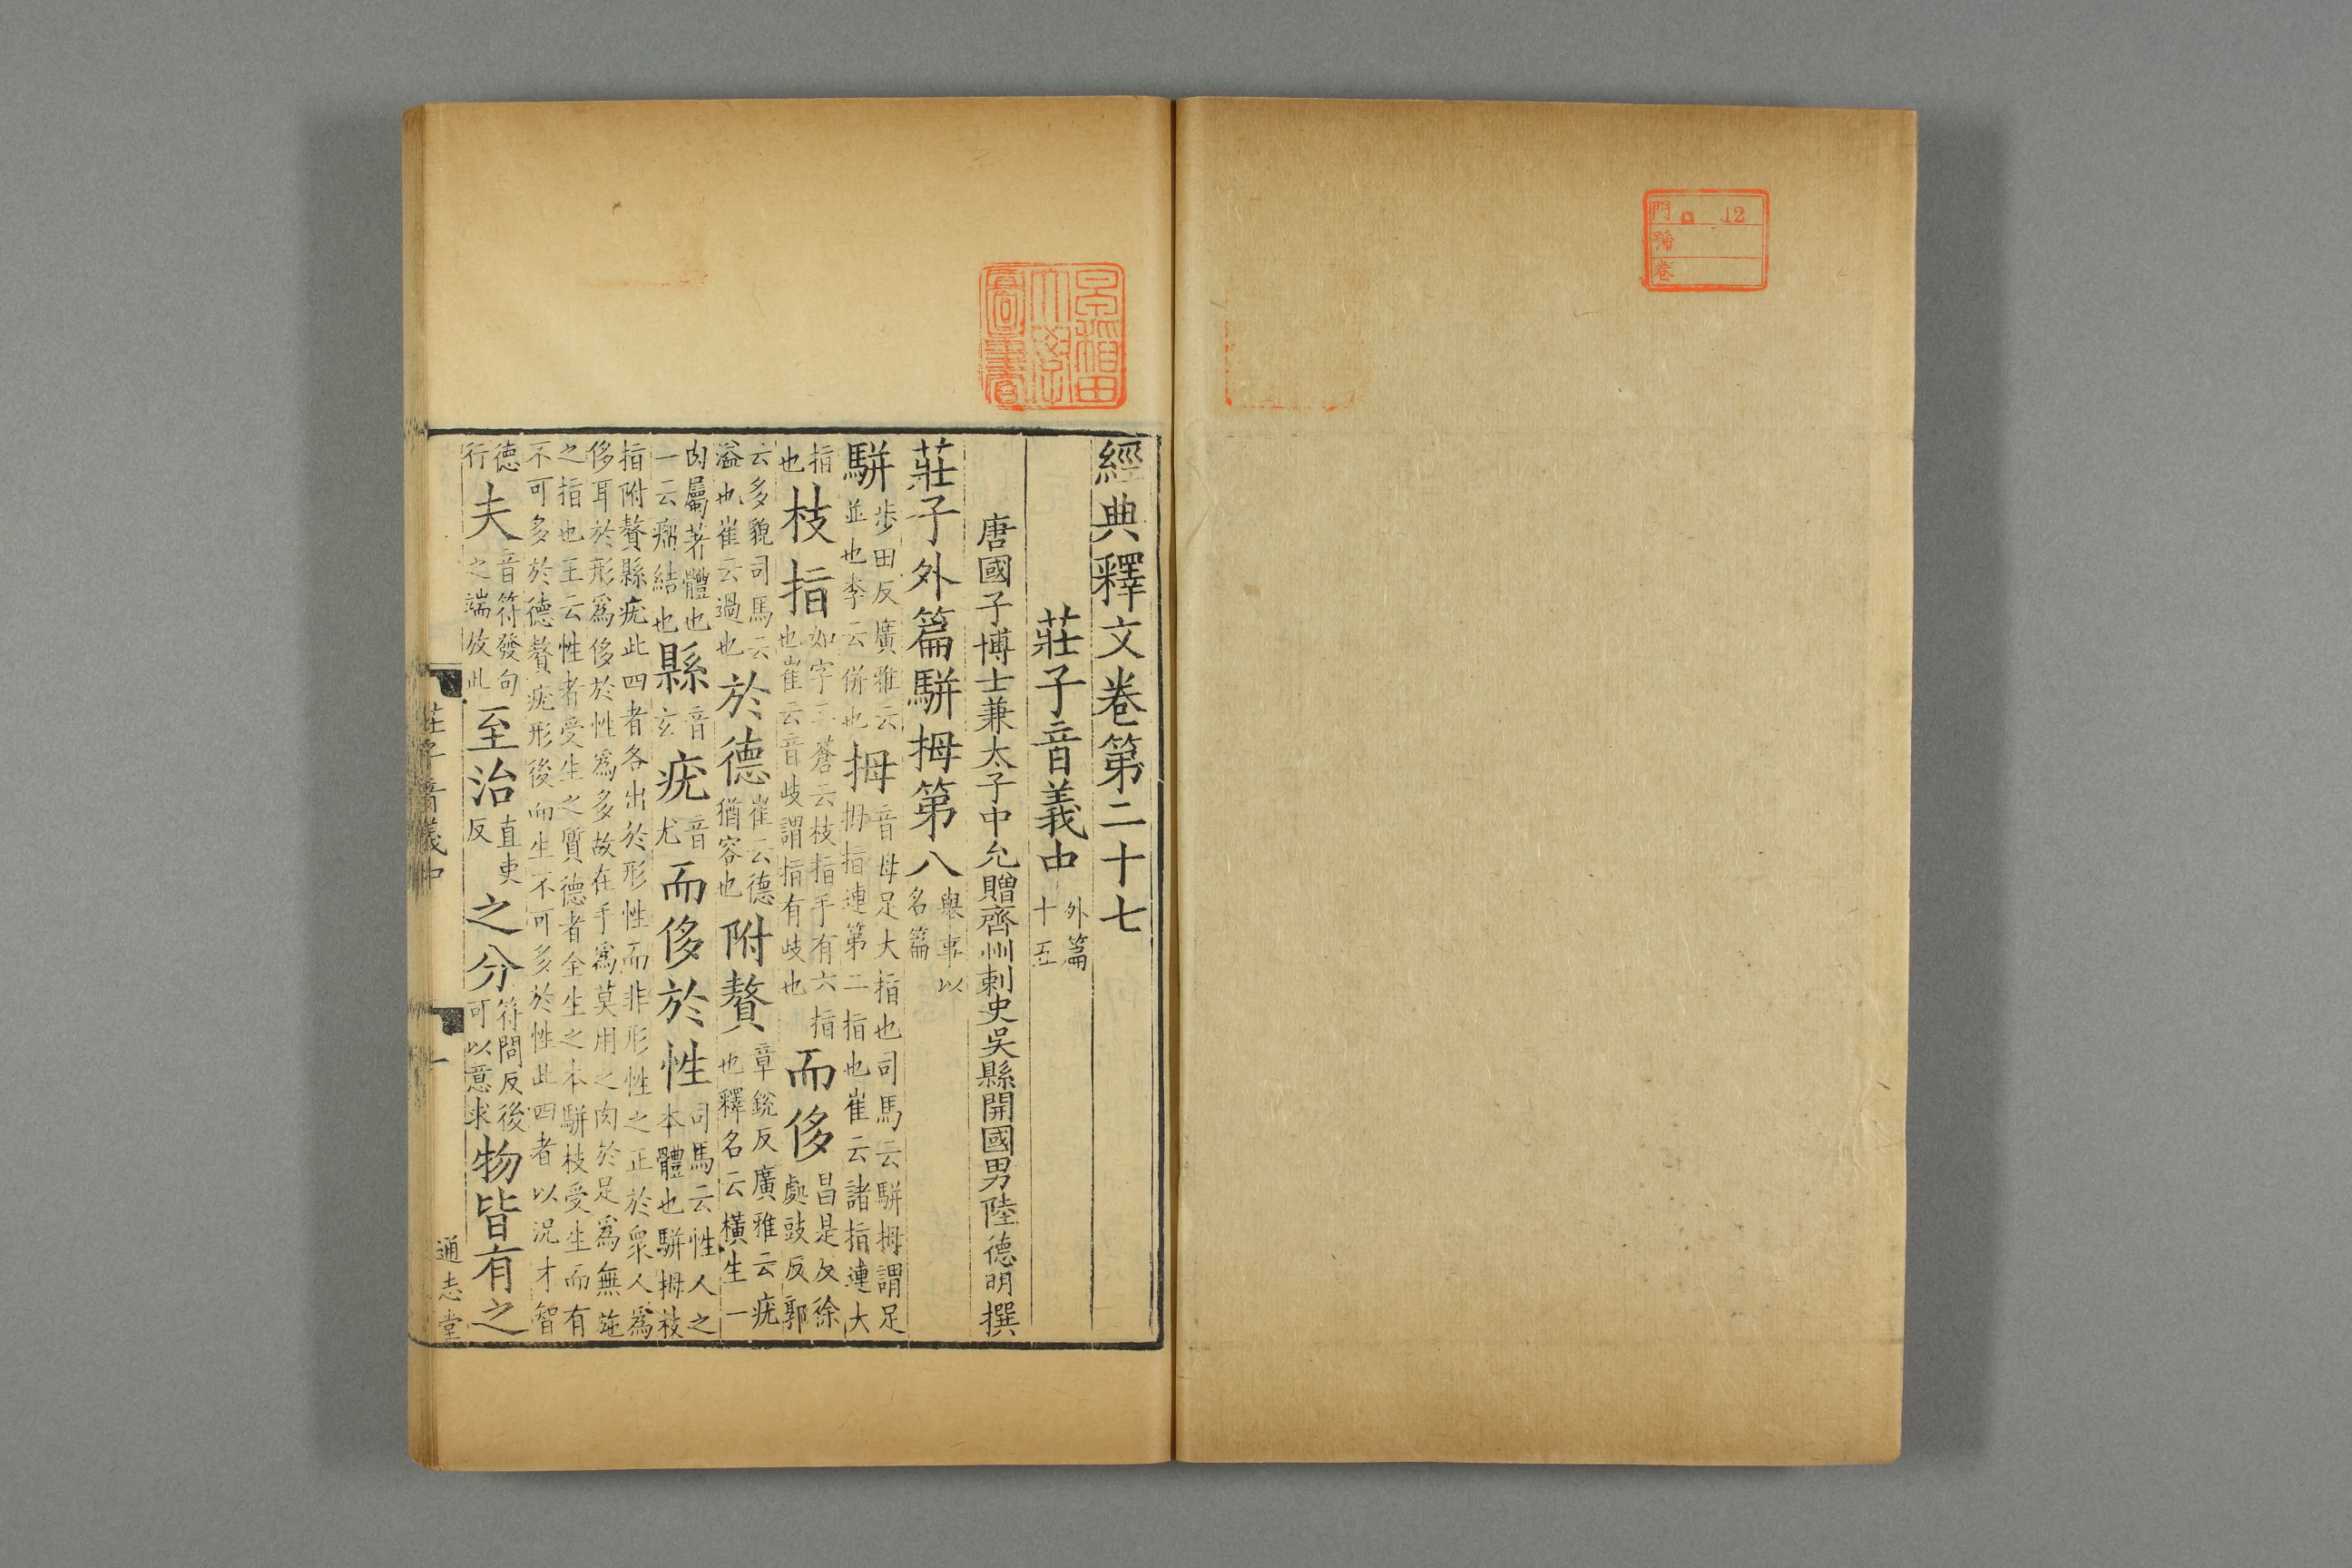 門 12
號
卷
早稲田大學圖書
經典釋文卷第二十七
莊子音義中 外篇十五
唐國子博士兼太子中允贈齊州刺史吳縣開國男陸德明撰
莊子外篇駢拇第八 舉事以名篇
駢 步田反廣雅云並也李云併也 拇 音母足大指也司馬云駢拇謂足拇指連第二指也崔云諸指連大
指也 枝指 如字三蒼云枝指手有六指也崔云音歧謂指有歧也 而侈 昌是反徐處豉反郭
云多貌司馬云溢也崔云過也 於德 崔云德猶容也 附贅 章銳反廣雅云疣也釋名云橫生一
肉屬著體也一云瘤結也 縣 音玄 疣 音尤 而侈於性 司馬云性人之本體也駢拇枝
指附贅縣疣此四者各出於形性而非形性之正於衆人爲侈耳於形爲侈於性爲多故在手爲莫用之肉於足爲無施
之指也王云性者受生之質德者全生之本駢枝受生而有不可多於德贅疣形後而生不可多於性此四者以況才智
德行 夫 音符發句之端放此 至治 直吏反 之分 符問反後可以意求 物皆有之
莊子音義中
一
通志堂